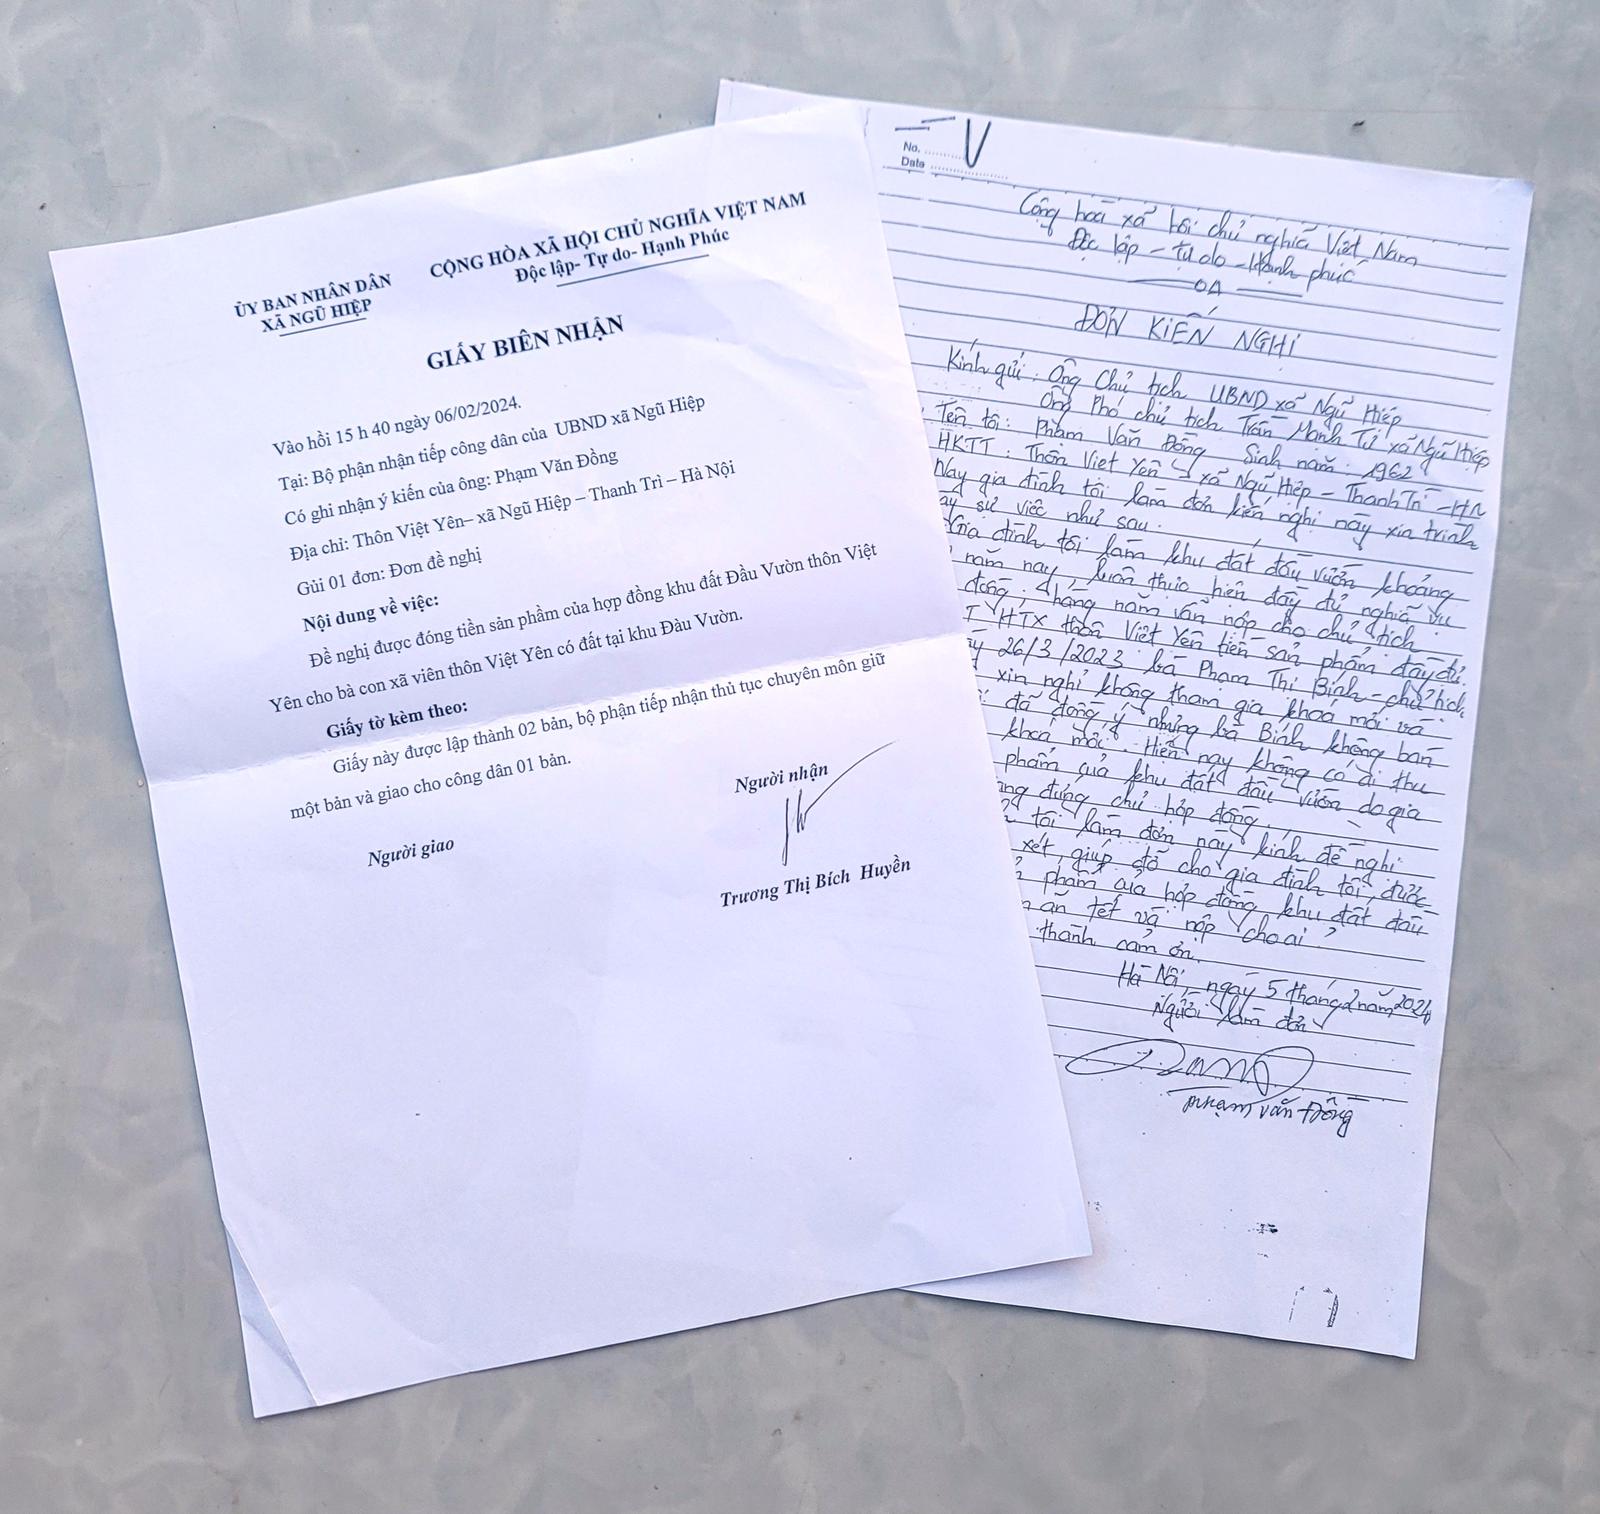 ỦY BAN NHÂN DÂN
XÃ NGŨ HIỆP
CỘNG HÒA XÃ HỘI CHỦ NGHĨA VIỆT NAM
Độc lập- Tự do- Hạnh Phúc
GIẤY BIÊN NHẬN
Vào hồi 15 h 40 ngày 06/02/2024.
Tại: Bộ phận nhận tiếp công dân của UBND xã Ngũ Hiệp
Có ghi nhận ý kiến của ông: Phạm Văn Đồng
Địa chỉ: Thôn Việt Yên– xã Ngũ Hiệp – Thanh Trì – Hà Nội
Gủi 01 đơn: Đơn đề nghị
Nội dung về việc:
Đề nghị được đóng tiền sản phầm của hợp đồng khu đất Đầu Vườn thôn Việt
Yên cho bà con xã viên thôn Việt Yên có đất tại khu Đàu Vườn.
Giấy tờ kèm theo:
Giấy này được lập thành 02 bản, bộ phận tiếp nhận thủ tục chuyên môn giữ
một bản và giao cho công dân 01 bản.
Người giao
Người nhận
Trương Thị Bích Huyền
No.
Date
Cộng hoà xã hội chủ nghĩa Việt Nam
Độc lập - Tự do - Hạnh phúc
ĐƠN KIẾN NGHỊ
Kính gửi: Ông Chủ tịch UBND xã Ngũ Hiệp
Ông Phó chủ tịch Trần Mạnh Tú xã Ngũ Hiệp
Tên tôi: Phạm Văn Đồng Sinh năm: 1962
HKTT: Thôn Việt Yên - xã Ngũ Hiệp - Thanh Trì - HN
Nay gia đình tôi làm đơn kiến nghị này xin trình
sự việc như sau:
Gia đình tôi làm khu đất đầu vườn khoảng
năm nay luôn thực hiện đầy đủ nghĩa vụ
đồng, hàng năm vẫn nộp cho chủ tịch
HTX thôn Việt Yên tiền sản phẩm đầy đủ.
26/3/2023 bà Phạm Thị Bính - chủ tịch
xin nghỉ không tham gia khoá mới và
đã đồng ý nhưng bà Bính không bàn
khoá mới. Hiện nay không có ai thu
phẩm của khu đất đầu vườn do gia
đứng chủ hợp đồng.
tôi làm đơn này kính đề nghị
xét, giúp đỡ cho gia đình tôi, được
phẩm của hợp đồng khu đất đầu
ăn tết và nộp cho ai?
thành cảm ơn.
Hà Nội, ngày 5 tháng 2 năm 2024
Người làm đơn
Phạm Văn Đồng